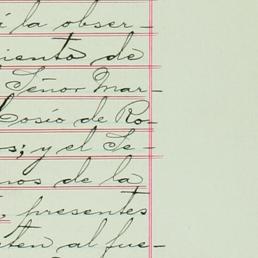 á la obser-
iento de
Señor Mar-
Cosío de Ro-
s; y el Se-
nos de la
, presentes
eten al fue-